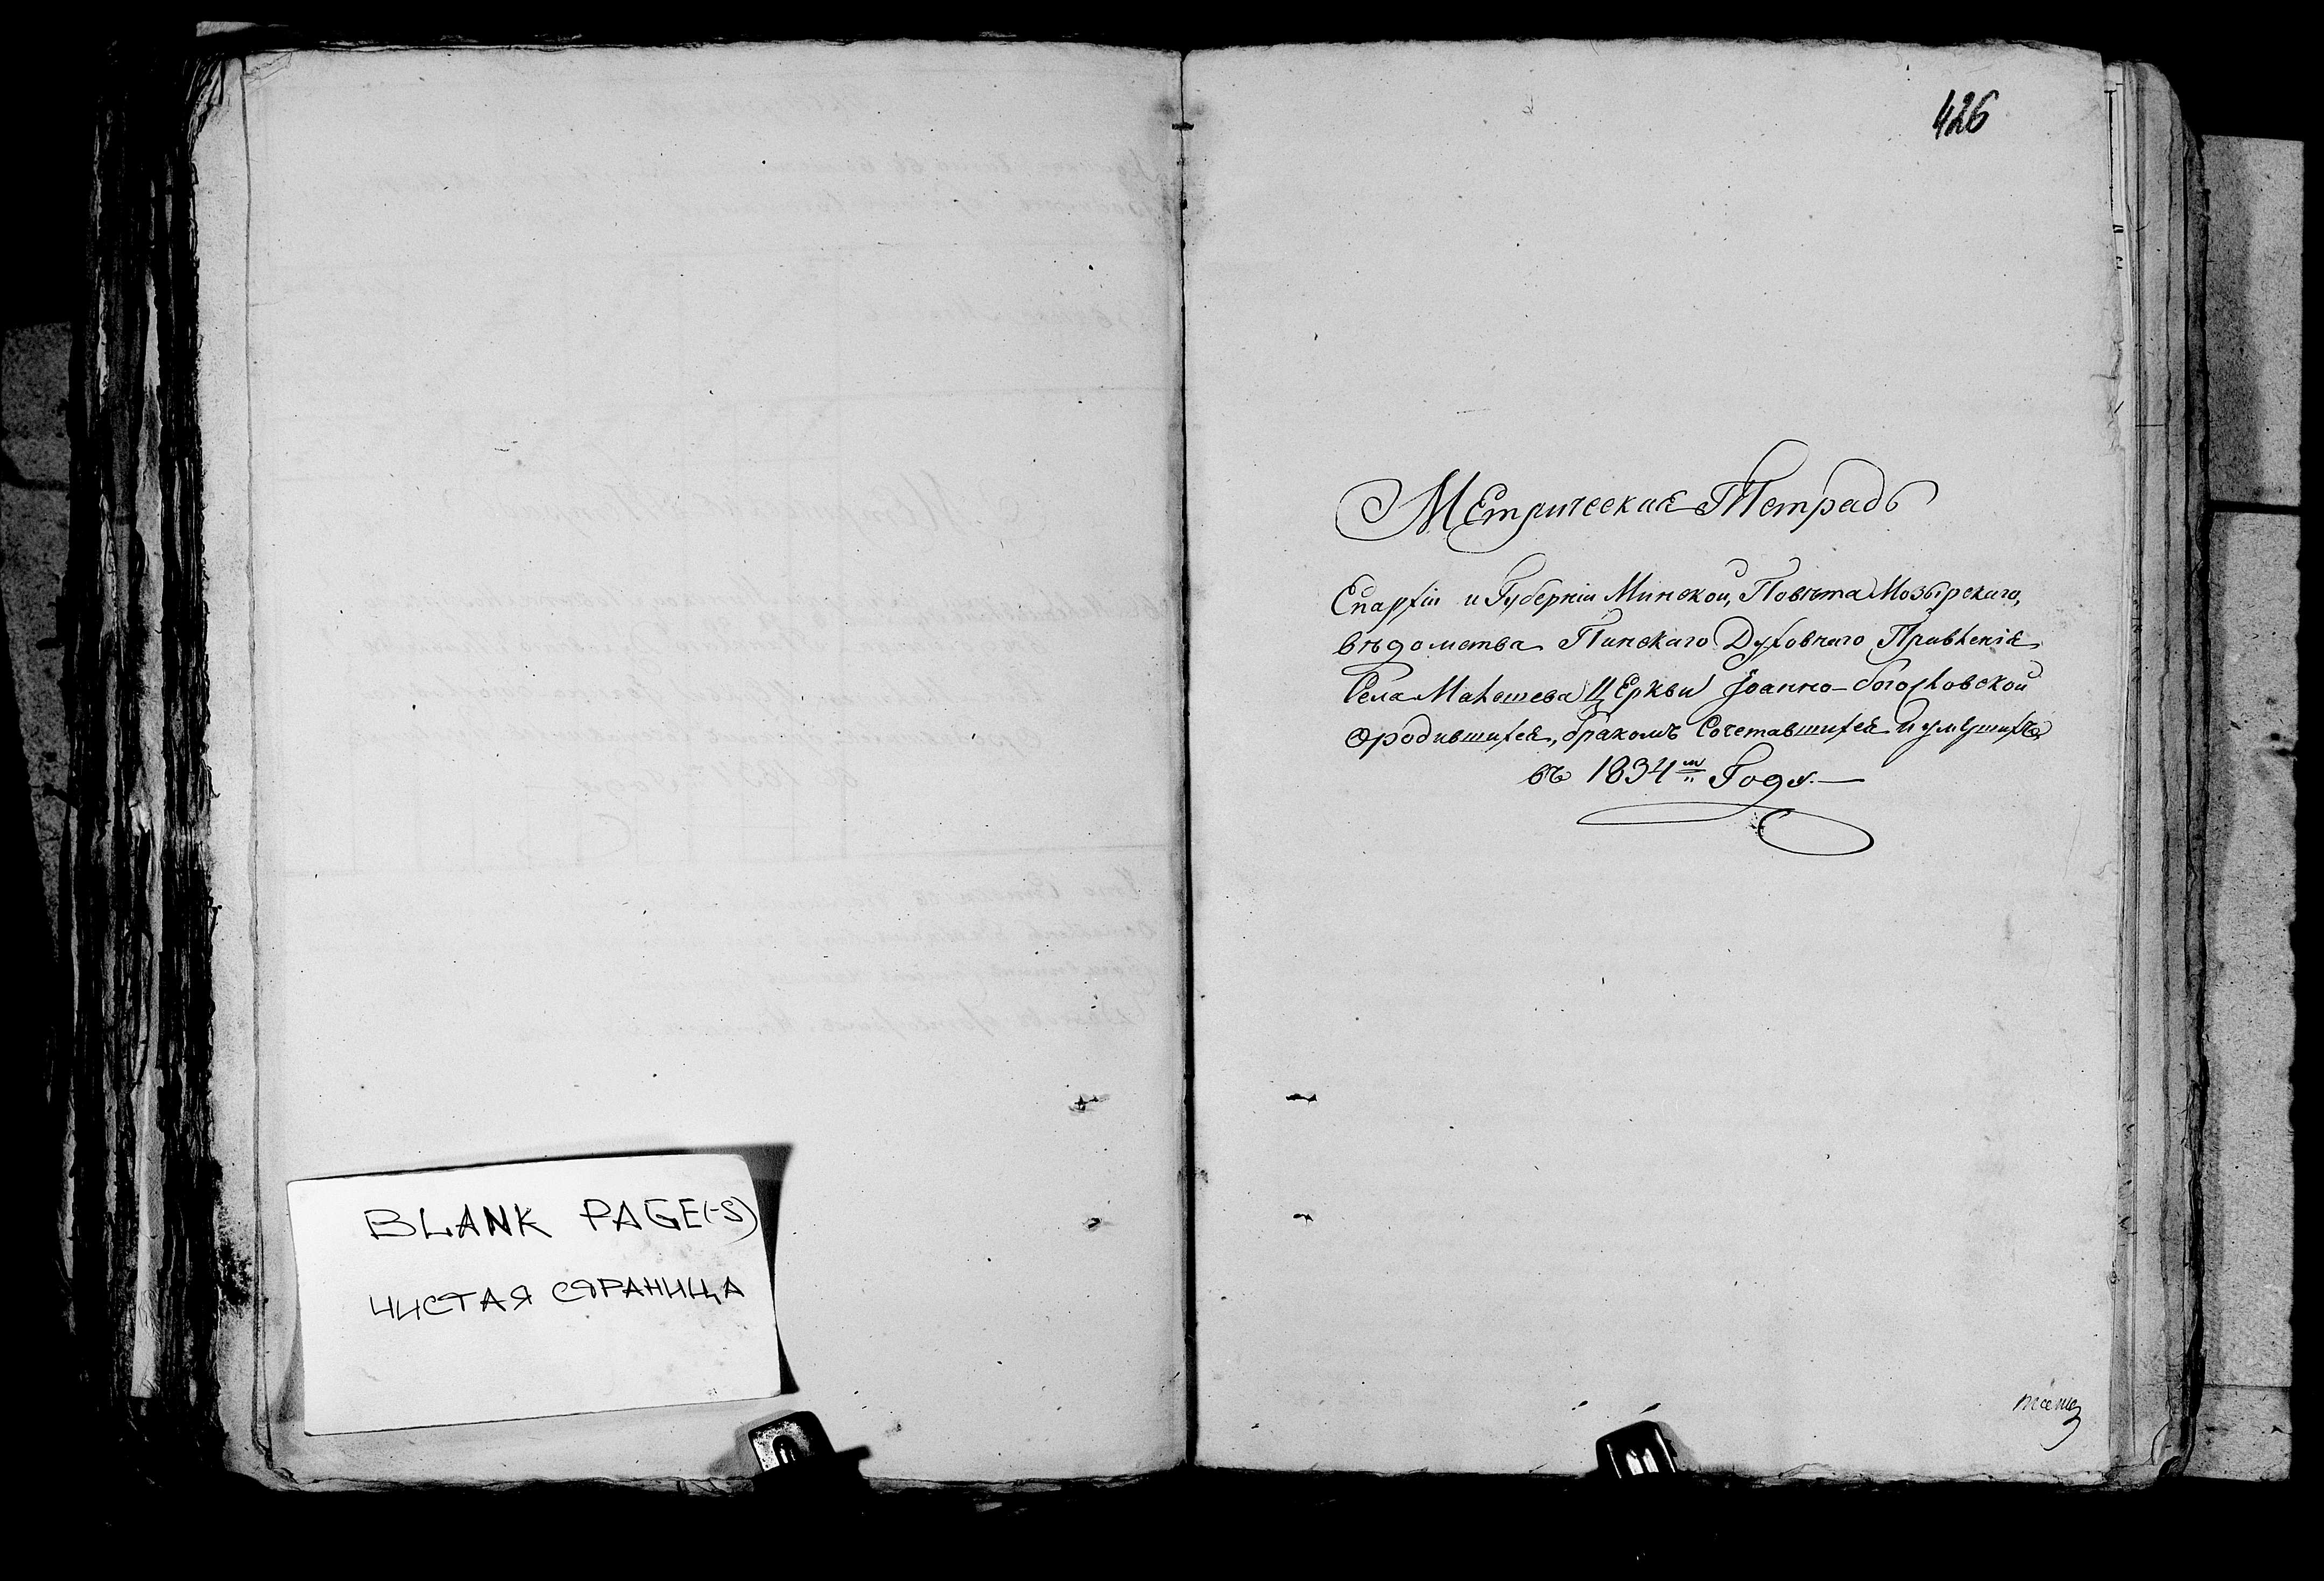 BLANK PAGE(-S)
ЧИСТАЯ СТРАНИЦА
426
Метрическая Тетрадь
Епархіи и Губерніи Минской, Повѣта Мозырскаго,
вѣдомства Пинскаго Духовнаго Правленія
Села Малешева Церкви Іоанно-богословской
о родившихся, бракомъ Сочетавшихся и умершихъ
въ 1834 м Году.—